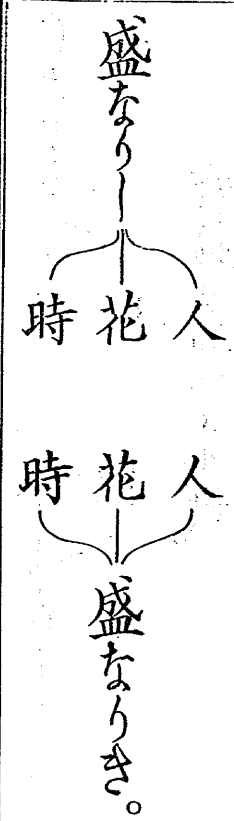 盛なりし
人
花
時
人
花
時
盛なりき。